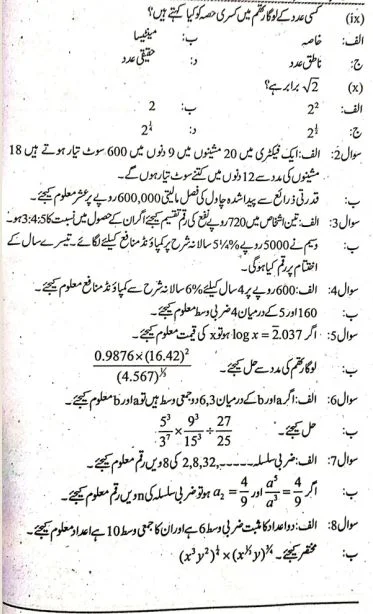 (ix) کسی عدد کے لوگارتھم میں کسری حصہ کو کیا کہتے ہیں؟
الف: خاصہ ب: مینٹیسا
ج: ناطق عدد د: حقیقی عدد
(x) √2 برابر ہے؟
الف: 2² ب: 2
ج: 2^½ د: 2^¼
سوال2: الف: ایک فیکٹری میں 20 مشینوں میں 9 دنوں میں 600 سوٹ تیار ہوتے ہیں 18
مشینوں کی مدد سے 12 دنوں میں کتنے سوٹ تیار ہوں گے۔
ب: قدرتی ذرائع سے پیدا شدہ چاول کی فصل مالیتی 600,000 روپے پر عشر معلوم کیجئے۔
سوال3: الف: تین اشخاص میں 720 روپے نفع کی رقم تقسیم کیجئے اگر ان کے حصول میں نسبت کا 3:4:5 ہو۔
ب: وسیم نے 5000 روپے 5¼% سالانہ شرح پر کمپاؤنڈ منافع کیلئے لگائے۔ تیسرے سال کے
اختتام پر رقم کیا ہوگی۔
سوال4: الف: 600 روپے پر 4 سال کیلئے 6% سالانہ شرح سے کمپاؤنڈ منافع معلوم کیجئے۔
ب: 160 اور 5 کے درمیان 4 ضربی وسط معلوم کیجئے۔
سوال5: الف: اگر log x = 2̄.037 ہو تو x کی قیمت معلوم کیجئے۔
ب: لوگارتھم کی مدد سے حل کیجئے۔ (0.9876 × (16.42)²) / (4.567)^⅓
سوال6: الف: اگر a اور b کے درمیان 6,3 دو جمعی وسط ہیں تو a اور b معلوم کیجئے۔
ب: حل کیجئے۔ 5³/3⁷ × 9³/15³ ÷ 27/25
سوال7: الف: ضربی سلسلہ 2,8,32,------ کی 8 ویں رقم معلوم کیجئے۔
ب: اگر a⁵/a³ = 4/9 اور a₂ = 4/9 ہو تو ضربی سلسلہ کی n ویں رقم معلوم کیجئے۔
سوال8: الف: دو اعداد کا مثبت ضربی وسط 6 ہے اور ان کا جمعی وسط 10 ہے اعداد معلوم کیجئے۔
ب: مختصر کیجئے۔ (x³y²)^¼ × (x^⅓y)^¾